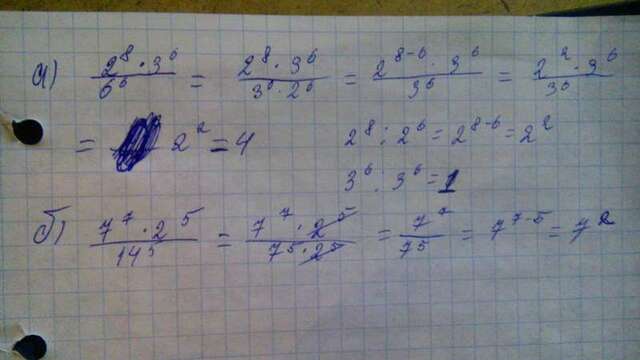 а) 2⁸·3⁶/6⁶ = 2⁸·3⁶/3⁶·2⁶ = 2⁸⁻⁶·3⁶/3⁶ = 2²·3⁶/3⁶
= 2² = 4 2⁸:2⁶=2⁸⁻⁶=2²
3⁶:3⁶=1
б) 7⁷·2⁵/14⁵ = 7⁷·2⁵/7⁵·2⁵ = 7⁷/7⁵ = 7⁷⁻⁵ = 7²